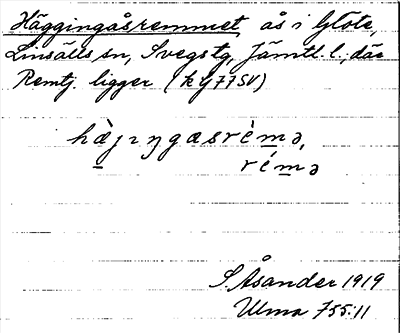 Häggingåsremmet ås i Glöte,
Linsälls sn, Svegs tg, Jämtl. l., där
Remtj. ligger (kg 77SV)
hæ̀jɪŋgasrèmə,
rémə
S. Åsander 1919
Ulma 755:11